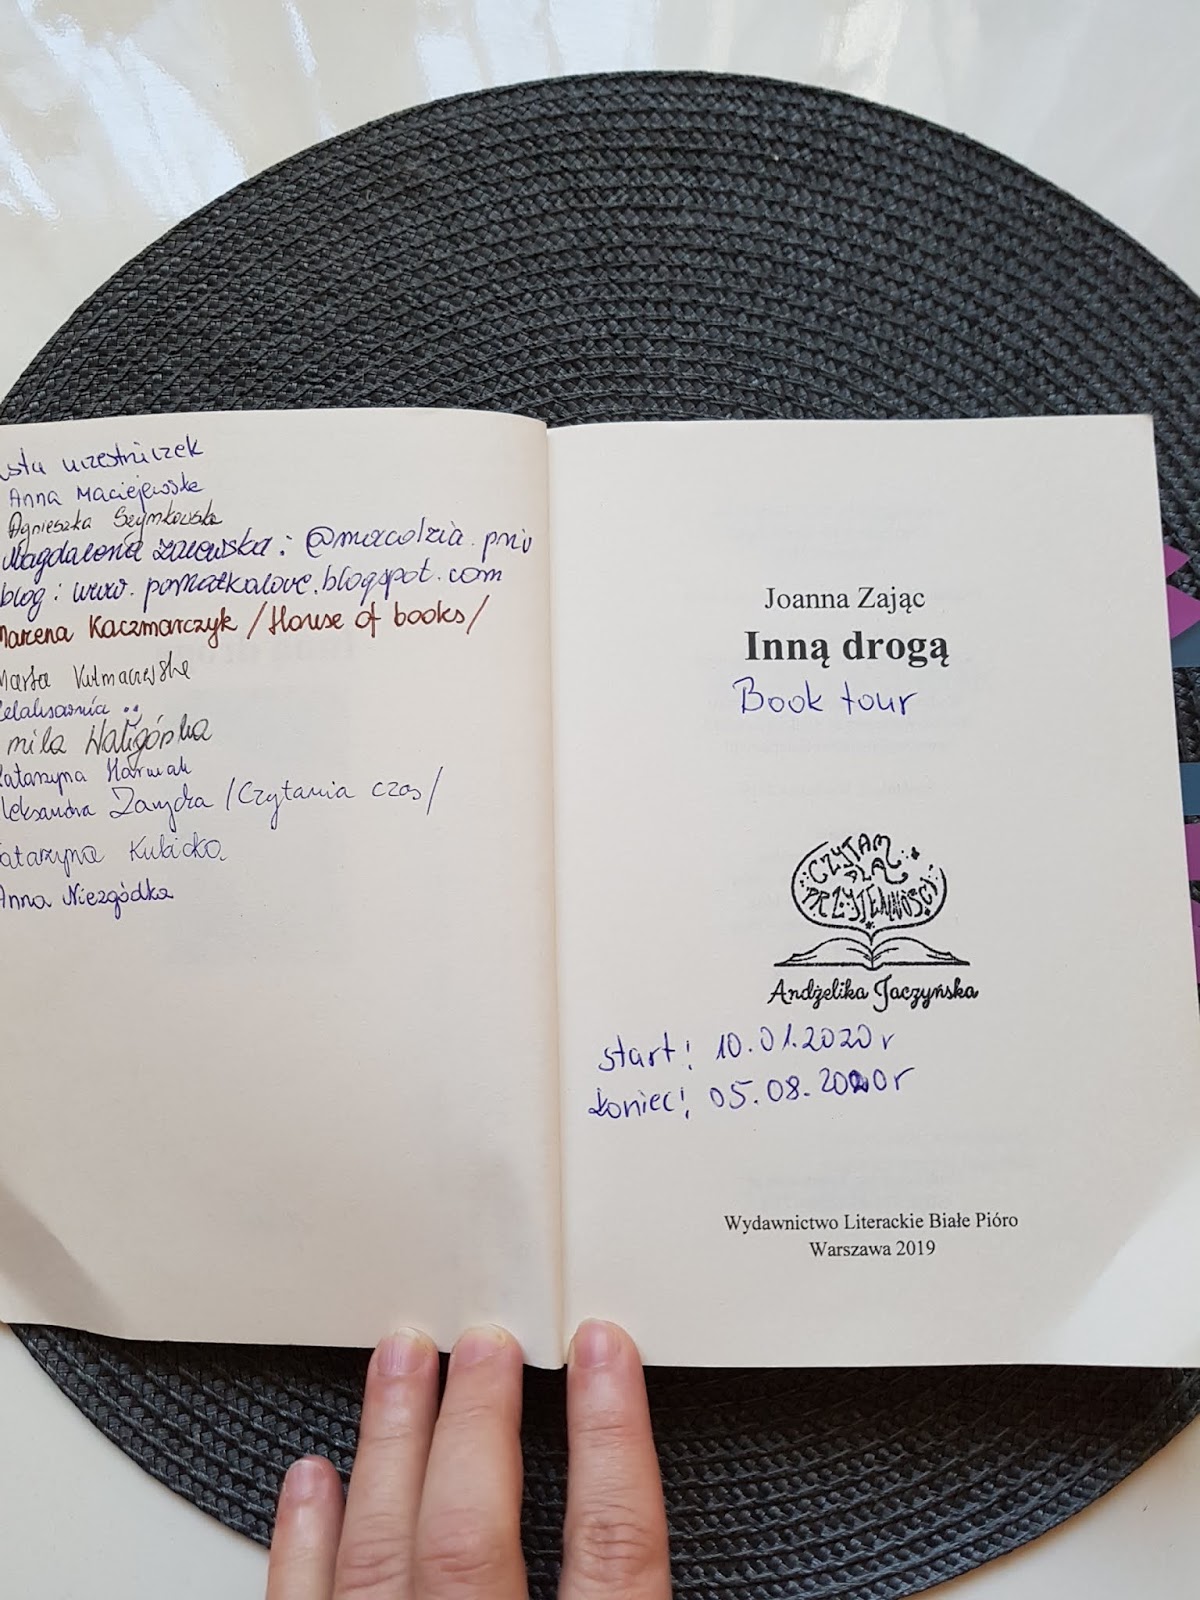 usta uczestniczek
Anna Maciejewska
Agnieszka Szymkowska
Magdalena : 
blog: www.pomatkalove.blogspot.com
Marzena Kaczmarczyk /House of books/
Marta
mila Waligórska
Katarzyna
leksandra /Czytania czas/
Katarzyna Kubicka
Anna Niezgódka
Joanna Zając
Inną drogą
Book tour
CZYTAM
DLA
PRZYJEMNOŚCI
Andżelika Jaczyńska
start! 10.01.2020r
koniec! 05.08.2020r
Wydawnictwo Literackie Białe Pióro
Warszawa 2019